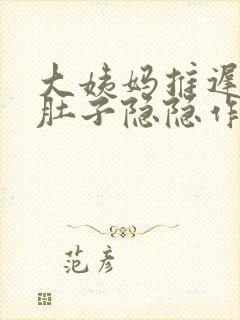 大姨妈推迟
肚子隐隐作
范彦